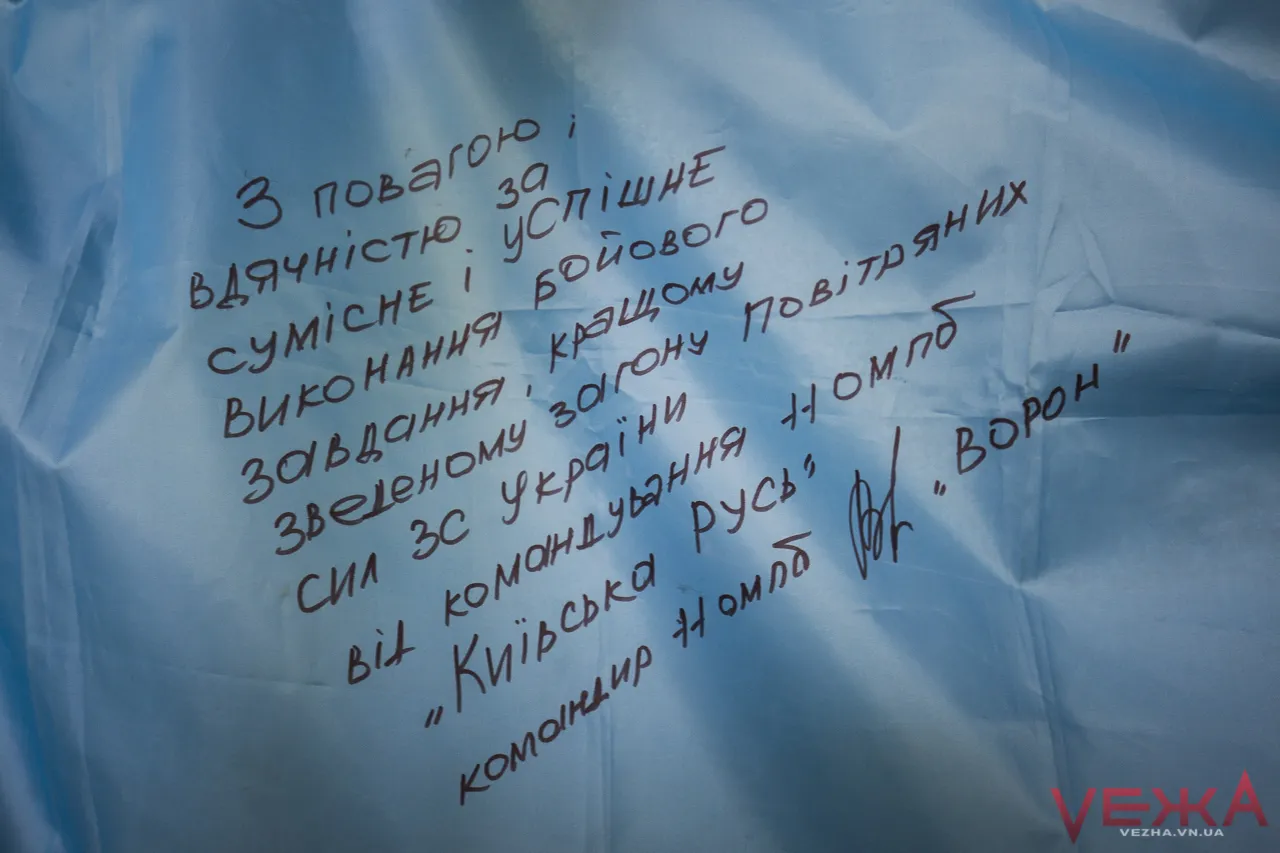 З повагою і
вдячністю за
сумісне і успішне
виконання бойового
завдання, кращому
зведеному загону повітряних
сил ЗС України
від командування Номпб
„Київська Русь"
командир Номпб „Ворон"
VЕЖА
VEZHA.VN.UA